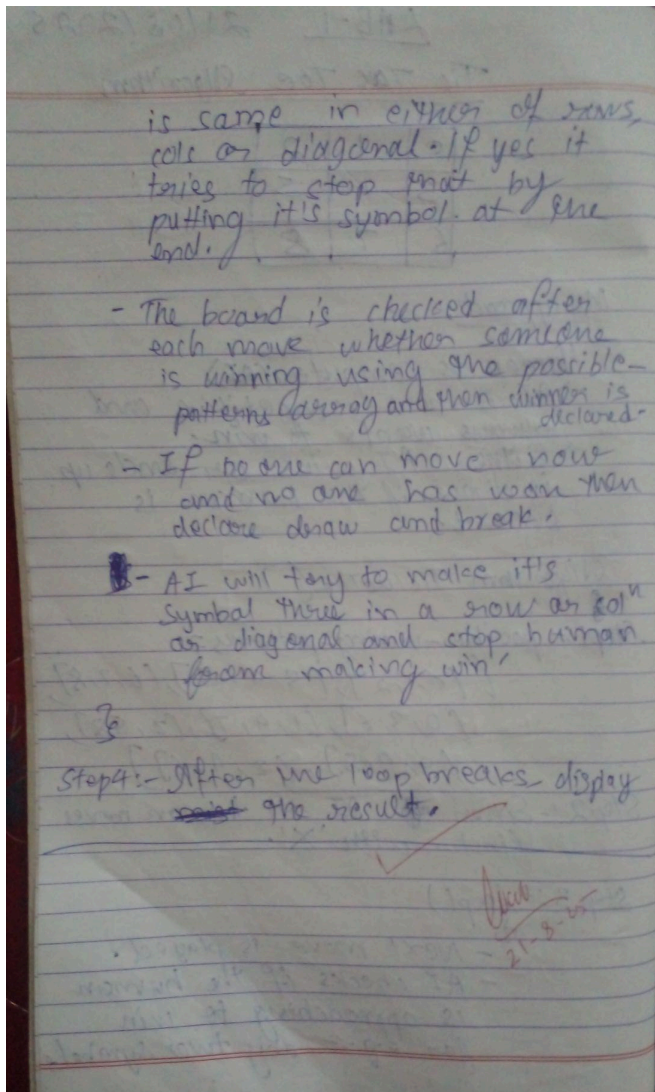 is same in either of rows,
cols or diagonal. If yes it
tries to stop that by
putting it's symbol at the
end.
- The board is checked after
each move whether someone
is winning using the possible-
patterns array and then winner is
declared.
- If no one can move now
and no one has won then
declare draw and break.
- AI will try to make it's
symbol three in a row or colⁿ
or diagonal and stop human
from making win
}
Step4:- After the loop breaks display
the result.
21-8-25